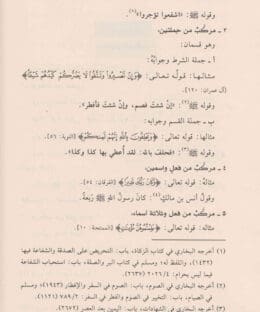 وقوله ﷺ: «اشفعوا تؤجروا»(١).
٣ - مركبٌ من جملتين،
وهو قسمان:
أ - جملة الشرط وجوابه:
مثالها: قوله تعالى: ﴿وَإِن تَصْبِرُوا وَتَتَّقُوا لَا يَضُرُّكُمْ كَيْدُهُمْ شَيْئًا﴾
[آل عمران: ١٢٠].
وقوله ﷺ(٢): «إنْ شئتَ فصم، وإنْ شئتَ فأفطِر».
ب - جملة القسم وجوابه:
مثالها: قوله تعالى: ﴿وَيَحْلِفُونَ بِاللَّهِ إِنَّهُمْ لَمِنكُمْ﴾ [التوبة: ٥٦].
وقوله ﷺ(٣): «فحلف بالله: لقد أُعطي بها كذا وكذا».
٤ - مركبٌ من فعلٍ واسمين،
مثاله: قوله تعالى: ﴿وَكَانَ رَبُّكَ قَدِيرًا﴾ [الفرقان: ٥٤].
وقول أنس بن مالك(٤): كانَ رسولُ الله ﷺ رَبْعةً.
٥ - مركبٌ من فعلٍ وثلاثة أسماء،
مثاله: قوله تعالى: ﴿عَلِمْتُمُوهُنَّ مُؤْمِنَاتٍ﴾ [الممتحنة: ١٠].
(١) أخرجه البخاري في كتاب الزكاة، باب: التحريض على الصدقة والشفاعة فيها
(١٤٣٢)، واللفظ له؛ ومسلم في كتاب البر والصلة، باب: استحباب الشفاعة
فيما ليس بحرام: ٢٠٢٦/٤ (٢٦٢٧).
(٢) أخرجه البخاري في الصوم، باب: الصوم في السفر والإفطار (١٩٤٣)؛ ومسلم
في الصيام، باب: التخيير في الصوم والفطر في السفر: ٧٨٩/٢ (١١٢١).
(٣) أخرجه البخاري في الشهادات، باب: اليمين بعد العصر (٢٦٧٢)